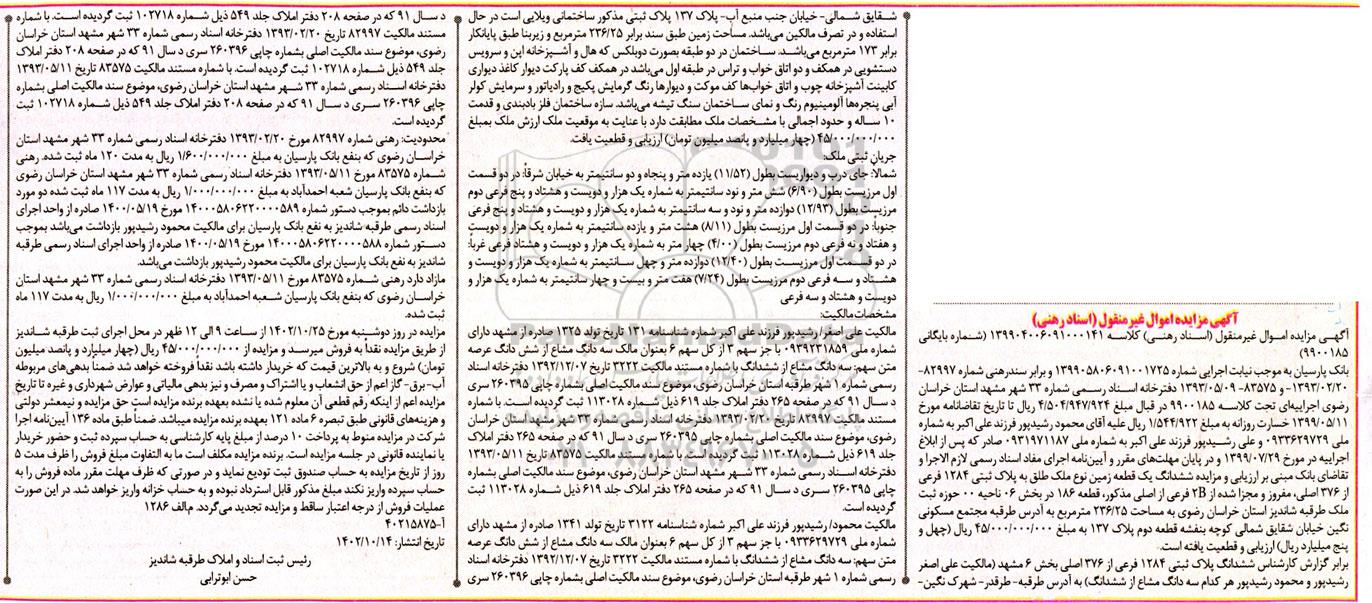 آگهی مزایده اموال غیرمنقول (اسناد رهنی)
آگهی مزایده اموال غیرمنقول (اسناد رهنی) کلاسه ۱۳۹۹۰۴۰۰۶۰۹۱۰۰۰۱۴۱ (شماره بایگانی
۹۹۰۰۱۸۵)
بانک پارسیان به موجب نیابت اجرایی شماره ۱۳۹۹۰۵۸۰۶۰۹۱۰۰۱۷۲۵ و برابر سندرهنی شماره ۸۲۹۹۷-
۱۳۹۳/۰۲/۲۰- و ۸۳۵۷۵- ۱۳۹۳/۰۵/۰۹ دفترخانه اسناد رسمی شماره ۳۳ شهر مشهد استان خراسان
رضوی اجراییه‌ای تحت کلاسه ۹۹۰۰۱۸۵ در قبال مبلغ ۴/۵۰۴/۹۴۷/۹۲۴ ریال تا تاریخ تقاضانامه مورخ
۱۳۹۹/۰۵/۱۱ خسارت روزانه به مبلغ ۱/۵۴۴/۹۲۲ ریال علیه آقای محمود رشیدپور فرزند علی اکبر به شماره
ملی ۰۹۳۳۶۲۹۷۲۹ و علی رشیدپور فرزند علی اکبر به شماره ملی ۰۹۳۱۹۷۱۱۸۷ صادر که پس از ابلاغ
اجراییه در مورخ ۱۳۹۹/۰۷/۲۹ و در پایان مهلت‌های مقرر و آیین‌نامه اجرای مفاد اسناد رسمی لازم الاجرا و
تقاضای بانک مبنی بر ارزیابی و مزایده ششدانگ یک قطعه زمین نوع ملک طلق به پلاک ثبتی ۱۲۸۴ فرعی
از ۳۷۶ اصلی، مفروز و مجزا شده از 2B فرعی از اصلی مذکور، قطعه ۱۸۶ در بخش ۰۶ ناحیه ۰۰ حوزه ثبت
ملک طرقبه شاندیز استان خراسان رضوی به مساحت ۲۳۶/۲۵ مترمربع به آدرس طرقبه مجتمع مسکونی
نگین خیابان شقایق شمالی کوچه بنفشه قطعه دوم پلاک ۱۳۷ به مبلغ ۴۵/۰۰۰/۰۰۰/۰۰۰ ریال (چهل و
پنج میلیارد ریال) ارزیابی و قطعیت یافته است.
برابر گزارش کارشناس ششدانگ پلاک ثبتی ۱۲۸۴ فرعی از ۳۷۶ اصلی بخش ۶ مشهد (مالکیت علی اصغر
رشیدپور و محمود رشیدپور هر کدام سه دانگ مشاع از ششدانگ) به آدرس طرقبه- طرقدر- شهرک نگین-
شقایق شمالی- خیابان جنب منبع آب- پلاک ۱۳۷ پلاک ثبتی مذکور ساختمانی ویلایی است در حال
استفاده و در تصرف مالکین می‌باشد. مساحت زمین طبق سند برابر ۲۳۶/۲۵ مترمربع و زیربنا طبق پایانکار
برابر ۱۷۳ مترمربع می‌باشد. ساختمان در دو طبقه بصورت دوبلکس که هال و آشپزخانه اپن و سرویس
دستشویی در همکف و دو اتاق خواب و تراس در طبقه اول می‌باشد در همکف کف پارکت دیوار کاغذ دیواری
کابینت آشپزخانه چوب و اتاق خواب‌ها کف موکت و دیوارها رنگ گرمایش پکیج و رادیاتور و سرمایش کولر
آبی پنجره‌ها آلومینیوم رنگ و نمای ساختمان سنگ تیشه می‌باشد. سازه ساختمان فلز بادبندی و قدمت
۱۰ ساله و حدود اجمالی با مشخصات ملک مطابقت دارد با عنایت به موقعیت ملک ارزش ملک بمبلغ
۴۵/۰۰۰/۰۰۰/۰۰۰ (چهار میلیارد و پانصد میلیون تومان) ارزیابی و قطعیت یافت.
جریان ثبتی ملک:
شمالا: جای درب و دیواریست بطول (۱۱/۵۲) یازده متر و پنجاه و دو سانتیمتر به خیابان شرقاً: در دو قسمت
اول مرزیست بطول (۶/۹۰) شش متر و نود سانتیمتر به شماره یک هزار و دویست و هشتاد و پنج فرعی دوم
مرزیست بطول (۱۲/۹۳) دوازده متر و نود و سه سانتیمتر به شماره یک هزار و دویست و هشتاد و پنج فرعی
جنوبا: در دو قسمت اول مرزیست بطول (۸/۱۱) هشت متر و یازده سانتیمتر به شماره یک هزار و دویست
و هفتاد و نه فرعی دوم مرزیست بطول (۴/۰۰) چهار متر به شماره یک هزار و دویست و هشتاد فرعی غربا:
در دو قسمت اول مرزیست بطول (۱۲/۴۰) دوازده متر و چهل سانتیمتر به شماره یک هزار و دویست و
هشتاد و سه فرعی دوم مرزیست بطول (۷/۲۴) هفت متر و بیست و چهار سانتیمتر به شماره یک هزار و
دویست و هشتاد و سه فرعی
مشخصات مالکیت:
مالکیت علی اصغر/ رشیدپور فرزند علی اکبر شماره شناسنامه ۱۳۱ تاریخ تولد ۱۳۲۵ صادره از مشهد دارای
شماره ملی ۰۹۳۹۲۳۱۸۵۹ با جز سهم ۳ از کل سهم ۶ بعنوان مالک سه دانگ مشاع از شش دانگ عرصه
متن سهم: سه دانگ مشاع از ششدانگ با شماره مستند مالکیت ۳۲۲۲ تاریخ ۱۳۹۲/۱۲/۰۷ دفترخانه اسناد
رسمی شماره ۱ شهر طرقبه استان خراسان رضوی، موضوع سند مالکیت اصلی بشماره چاپی ۲۶۰۳۹۵ سری
د سال ۹۱ که در صفحه ۲۶۵ دفتر املاک جلد ۶۱۹ ذیل شماره ۱۱۳۰۲۸ ثبت گردیده است. با شماره
مستند مالکیت ۸۲۹۹۷ تاریخ ۱۳۹۳/۰۲/۲۰ دفترخانه اسناد رسمی شماره ۳۳ شهر مشهد استان خراسان
رضوی، موضوع سند مالکیت اصلی بشماره چاپی ۲۶۰۳۹۵ سری د سال ۹۱ که در صفحه ۲۶۵ دفتر املاک
جلد ۶۱۹ ذیل شماره ۱۱۳۰۲۸ ثبت گردیده است. با شماره مستند مالکیت ۸۳۵۷۵ تاریخ ۱۳۹۳/۰۵/۱۱
دفترخانه اسناد رسمی شماره ۳۳ شهر مشهد استان خراسان رضوی، موضوع سند مالکیت اصلی بشماره
چاپی ۲۶۰۳۹۵ سری د سال ۹۱ که در صفحه ۲۶۵ دفتر املاک جلد ۶۱۹ ذیل شماره ۱۱۳۰۲۸ ثبت
گردیده است.
مالکیت محمود/ رشیدپور فرزند علی اکبر شماره شناسنامه ۳۱۲۲ تاریخ تولد ۱۳۴۱ صادره از مشهد دارای
شماره ملی ۰۹۳۳۶۲۹۷۲۹ با جز سهم ۳ از کل سهم ۶ بعنوان مالک سه دانگ مشاع از شش دانگ عرصه
متن سهم: سه دانگ مشاع از ششدانگ با شماره مستند مالکیت ۳۲۲۲ تاریخ ۱۳۹۲/۱۲/۰۷ دفترخانه اسناد
رسمی شماره ۱ شهر طرقبه استان خراسان رضوی، موضوع سند مالکیت اصلی بشماره چاپی ۲۶۰۳۹۶ سری
د سال ۹۱ که در صفحه ۲۰۸ دفتر املاک جلد ۵۴۹ ذیل شماره ۱۰۲۷۱۸ ثبت گردیده است. با شماره
مستند مالکیت ۸۲۹۹۷ تاریخ ۱۳۹۳/۰۲/۲۰ دفترخانه اسناد رسمی شماره ۳۳ شهر مشهد استان خراسان
رضوی، موضوع سند مالکیت اصلی بشماره چاپی ۲۶۰۳۹۶ سری د سال ۹۱ که در صفحه ۲۰۸ دفتر املاک
جلد ۵۴۹ ذیل شماره ۱۰۲۷۱۸ ثبت گردیده است. با شماره مستند مالکیت ۸۳۵۷۵ تاریخ ۱۳۹۳/۰۵/۱۱
دفترخانه اسناد رسمی شماره ۳۳ شهر مشهد استان خراسان رضوی، موضوع سند مالکیت اصلی بشماره
چاپی ۲۶۰۳۹۶ سری د سال ۹۱ که در صفحه ۲۰۸ دفتر املاک جلد ۵۴۹ ذیل شماره ۱۰۲۷۱۸ ثبت
گردیده است.
محدودیت: رهنی شماره ۸۲۹۹۷ مورخ ۱۳۹۳/۰۲/۲۰ دفترخانه اسناد رسمی شماره ۳۳ شهر مشهد استان
خراسان رضوی که بنفع بانک پارسیان به مبلغ ۱/۶۰۰/۰۰۰/۰۰۰ ریال به مدت ۱۲۰ ماه ثبت شده. رهنی
شماره ۸۳۵۷۵ مورخ ۱۳۹۳/۰۵/۱۱ دفترخانه اسناد رسمی شماره ۳۳ شهر مشهد استان خراسان رضوی
که بنفع بانک پارسیان شعبه احمدآباد به مبلغ ۱/۰۰۰/۰۰۰/۰۰۰ ریال به مدت ۱۱۷ ماه ثبت شده دو مورد
بازداشت دائم بموجب دستور شماره ۱۴۰۰۰۵۸۰۶۲۲۰۰۰۰۵۸۹ مورخ ۱۴۰۰/۰۵/۱۹ صادره از واحد اجرای
اسناد رسمی طرقبه شاندیز به نفع بانک پارسیان برای مالکیت محمود رشیدپور بازداشت می‌باشد بموجب
دستور شماره ۱۴۰۰۰۵۸۰۶۲۲۰۰۰۰۵۸۸ مورخ ۱۴۰۰/۰۵/۱۹ صادره از واحد اجرای اسناد رسمی طرقبه
شاندیز به نفع بانک پارسیان برای مالکیت محمود رشیدپور بازداشت می‌باشد.
مازاد دارد رهنی شماره ۸۳۵۷۵ مورخ ۱۳۹۳/۰۵/۱۱ دفترخانه اسناد رسمی شماره ۳۳ شهر مشهد استان
خراسان رضوی که بنفع بانک پارسیان شعبه احمدآباد به مبلغ ۱/۰۰۰/۰۰۰/۰۰۰ ریال به مدت ۱۱۷ ماه
ثبت شده.
مزایده در روز دوشنبه مورخ ۱۴۰۲/۱۰/۲۵ از ساعت ۹ الی ۱۲ ظهر در محل اجرای ثبت طرقبه شاندیز
از طریق مزایده نقداً به فروش میرسد و مزایده از ۴۵/۰۰۰/۰۰۰/۰۰۰ ریال (چهار میلیارد و پانصد میلیون
تومان) شروع و به بالاترین قیمت که خریدار داشته باشد نقداً فروخته خواهد شد ضمنا بدهی‌های مربوطه
آب- برق- گاز اعم از حق انشعاب و یا اشتراک و مصرف و نیز بدهی مالیاتی و عوارض شهرداری و غیره تا تاریخ
مزایده اعم از اینکه رقم قطعی آن معلوم شده یا نشده بعهده برنده مزایده است حق مزایده و نیمعشر دولتی
و هزینه‌های قانونی طبق تبصره ۶ ماده ۱۲۱ بعهده برنده مزایده میباشد. ضمناً طبق ماده ۱۳۶ آیین‌نامه اجرا
شرکت در مزایده منوط به پرداخت ۱۰ درصد از مبلغ پایه کارشناسی به حساب سپرده ثبت و حضور خریدار
یا نماینده قانونی در جلسه است. برنده مزایده مکلف است ما به التفاوت مبلغ فروش را ظرف مدت ۵
روز از تاریخ مزایده به حساب صندوق ثبت تودیع نماید و در صورتی که ظرف مهلت مقرر مانده فروش را به
حساب سپرده واریز نکند مبلغ مذکور قابل استرداد نبوده و به حساب خزانه واریز خواهد شد. در این صورت
عملیات فروش از درجه اعتبار ساقط و مزایده تجدید می‌گردد. م‌الف ۱۲۸۶
آ-۴۰۲۱۵۸۷۵
تاریخ انتشار: ۱۴۰۲/۱۰/۱۴
رئیس ثبت اسناد و املاک طرقبه شاندیز
حسن ابوترابی